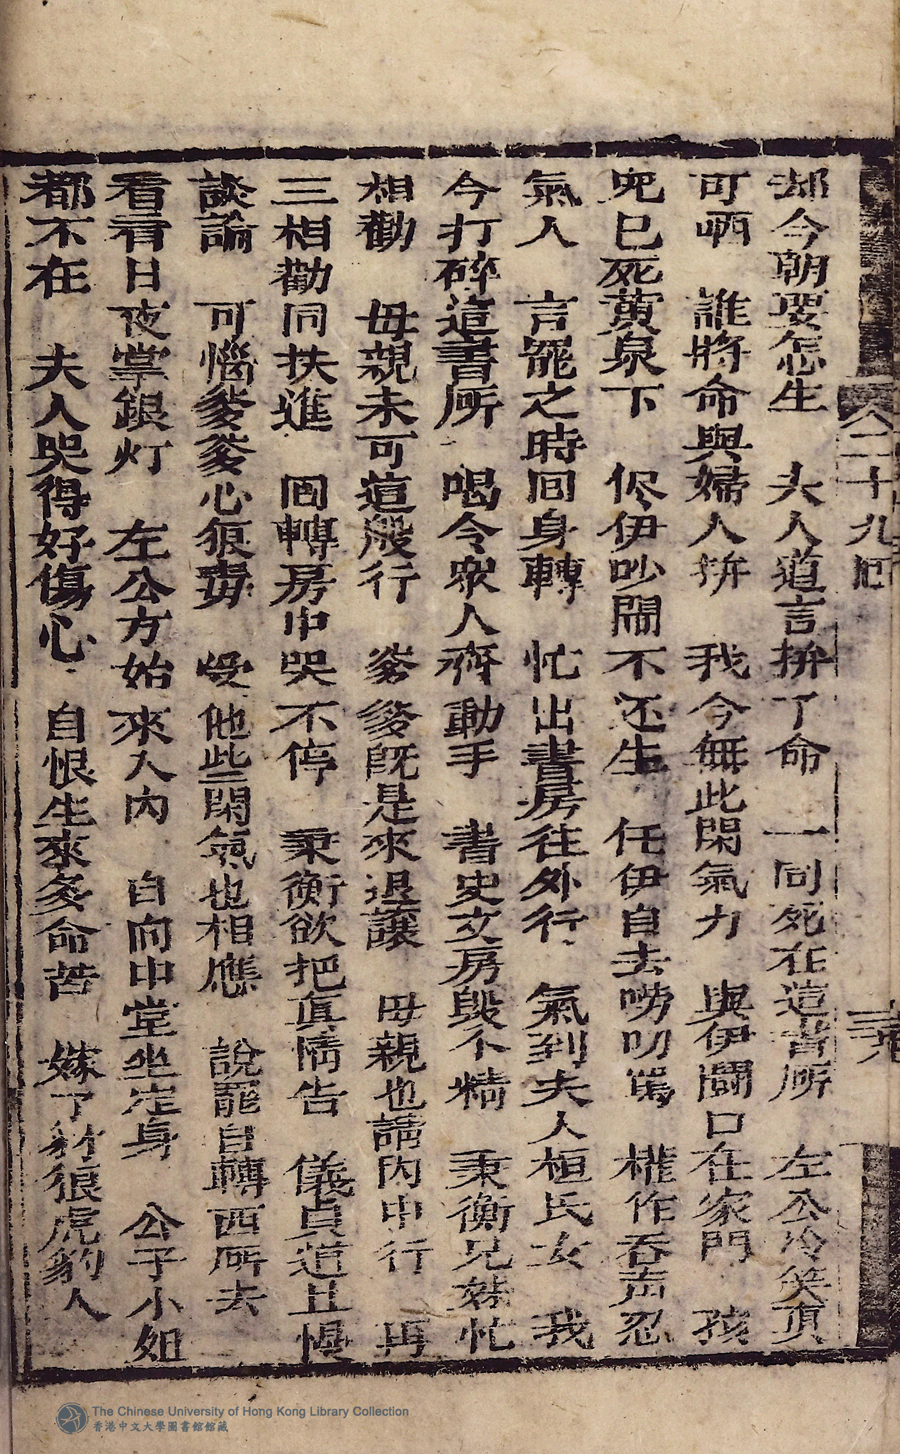 八二十九囘
三九
却今朝要怎生　夫人道言拚了命　一同死在這書所　左公冷笑真
可哂　誰將命與婦人拚　我今無此閑氣力　與伊鬪口在家門　孩
兜已死黄泉下　侭伊吵閙不还生　任伊自去唠叨罵　權作吞声忍
氣人　言罷之時囘身轉　忙出書房往外行　氣到夫人桓氏女　我
今打碎這書所　喝令衆人齊動手　書史文房毁不精　秉衡兄妹忙
相勸　母親未可這般行　爹爹既是來退讓　母親也請内中行　再
三相勸同扶進　囘轉房中哭不停　秉衡欲把真情告　儀貞道且慢
談論　可惱爹爹心狠毒　受他些閑氣也相應　說罷自轉西所去
看看日夜掌銀灯　左公方始來入内　自向中堂坐定身　公子小姐
都不在　夫人哭得好傷心　自恨生來多命苦　嫁了豺狼虎豹人
The Chinese University of Hong Kong Library Collection
香港中文大學圖書館館藏